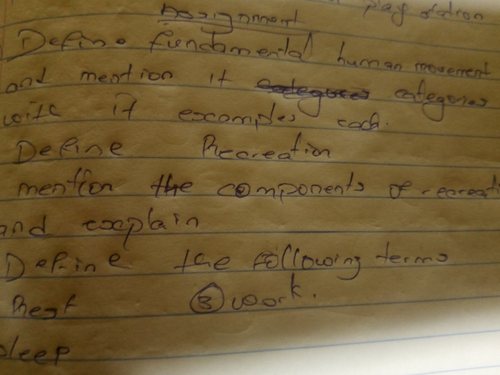 Assignment
Define fundamental human movement
and mention it categories
with it examples each.
Define Recreation
mention the components of
and explain
Define the following terms
Rest ③ work.
sleep